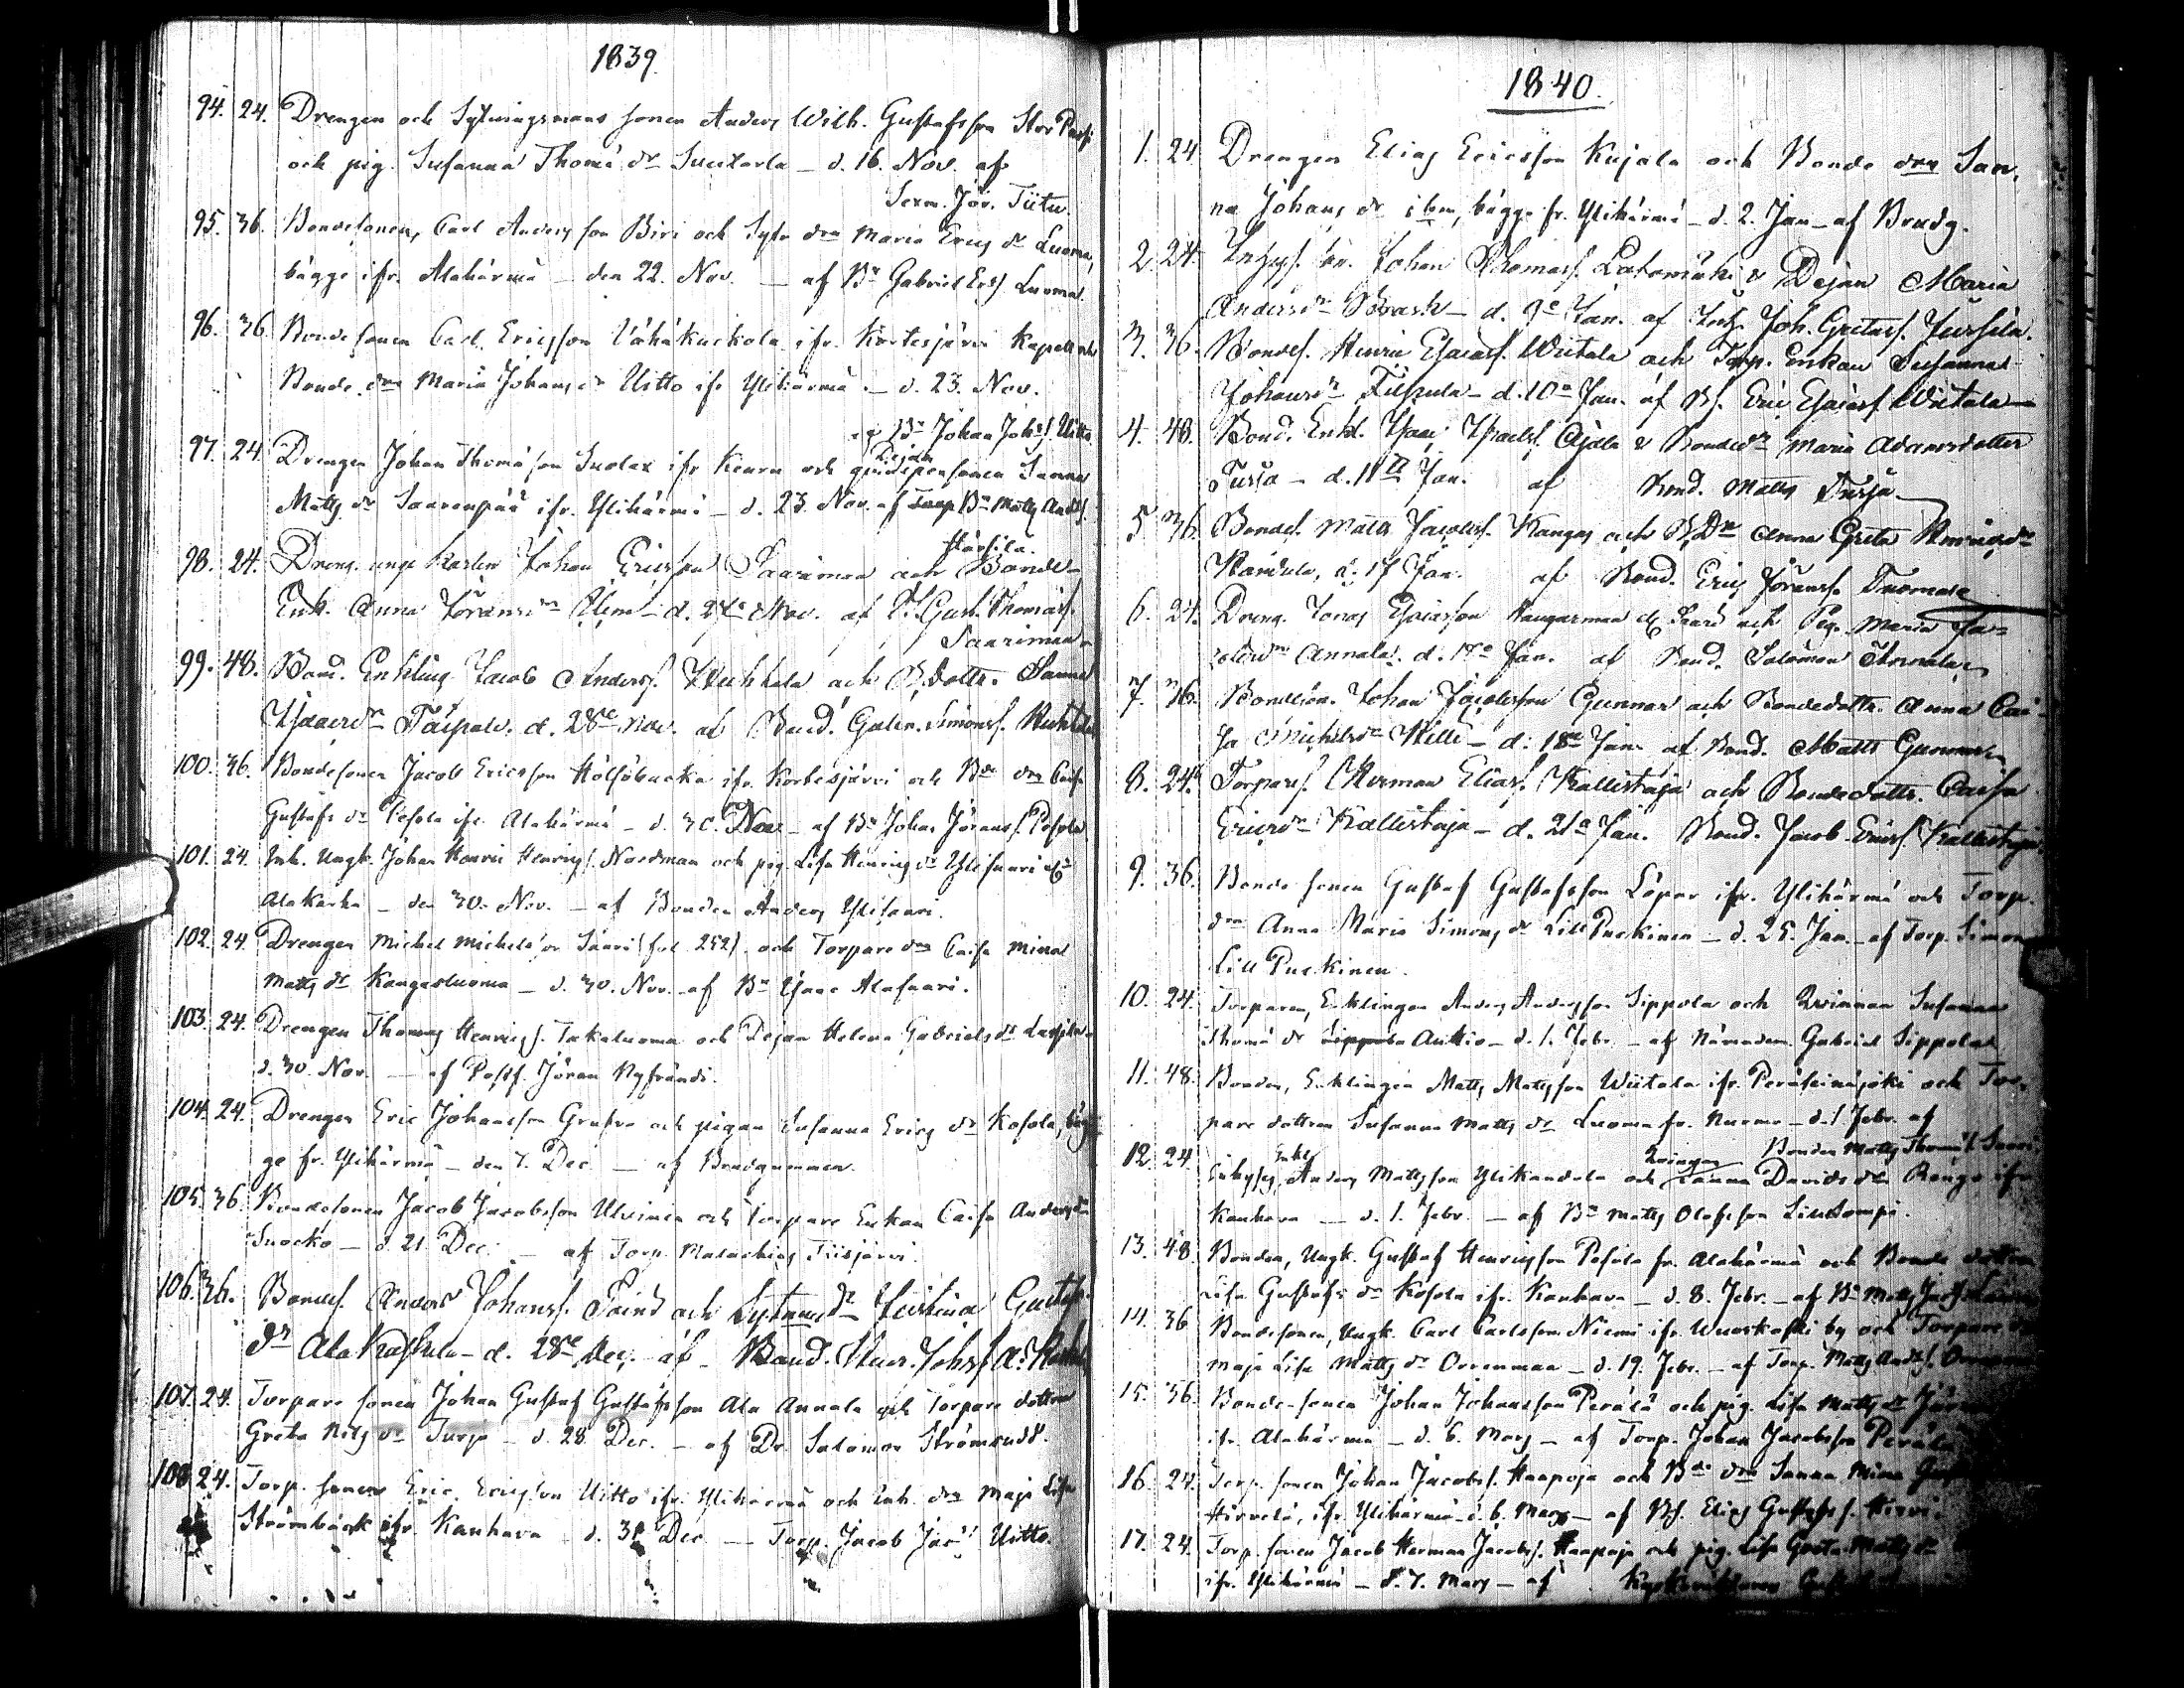 1839.
94. 24. Drengen och Sytningsmans sonen Anders Wilh. Gustafsson Stor
och pig. Susanna Thomæ dr Suutarla _ d. 16. Nov. af
Sexm. Jör. Tiitu.
95. 36. Bondesonen, Carl Andersson Biri och Sytn dra Maria Erics dr Luoma,
bägge ifr. Alahärmä _ den 22. Nov. _ af Bn Gabriel Ers. Luoma
96. 36. Bondesonen Carl Ericsson Vähäkuckola ifr. Kortesjärvi Kapell och
Bonde dra Maria Johans dr Uitto ifr Ylihärmä _ d. 23. Nov.
af Bn Johan Johs. Uitto
97. 24. Drengen Johan Thomæson ifr och Dejan Sanna
Matts dr Saarenpää ifr. Ylihärmä _ d. 23. Nov. af Bn Matts Ands.
Härsilä.
98. 24. Dreng. unge Karlen Johan Ericsson Saarimaa och Bonde
Enk. Anna Göransdr _ d. 27de Nov. af Gust. Thomæs.
Saarimaa
99. 48. Bond. Enkling Jacob Anderss. Huhtala och B.dottr. Sanna
Isaacsdr Taipale. d. 28de Nov. af Bond. Gabr. Simons. Huhtala
100. 36. Bondesonen Jacob Ericsson Hölsöbacka ifr. Kortesjärvi och Bde dra Caisa
Gustafs dr Pesola ifr. Alahärmä _ d. 30. Nov _ af Bn Johan Jörans. Pesola
101. 24. Inh. Ungk. Johan Henric Henrics. Nordman och pig. Lisa Henrics dr Ylisaari
Alakarhu _ den 30. Nov. _ af Bonden Anders Ylisaari.
102. 24. Drengen Michel Michelsson Saari (fol. 252). och Torpare dra Caisa Mina
Matts dr Kangasluoma _ d. 30. Nov. af Bn Isaac Alasaari.
103. 24. Drengen Thomas Henrics. Takaluoma och Dejan Helena Gabriels dr Lassila
d. 30. Nov. _ af Postf. Jöran Nyfrändi.
104. 24. Drengen Eric Johansson och pigan Susanna Erics dr Kosola, bäg
ge fr. Ylihärmä _ den 7. Dec. _ af Brudgummen.
105. 36. Bondesonen Jacob Jacobsson Ulvinen och Torpare Enkan Caisa Anders dr
Snocko _ d. 21. Dec. _ af Torp. Malachias Tiisjärvi.
106. 36. Bondes. Anders Johanss. och Sytnmsdr Justina Gustafs
dr Ala Kaskula _ d. 28de Dec. af _ Bond. Johs. A.
107. 24. Torpare sonen Johan Gustaf Gustafsson Ala Annala och Torpare dottren
Greta Nils dr Turja _ d. 28. Dec. _ af Dr. Salomon Strömrudd.
108. 24. Torp. sonen Eric Ericsson Uitto ifr. Ylihärmä och Inh. dra Maja Lisa
Strömbäck ifr. Kauhava _ d. 31. Dec. _ Torp. Jacob Jacs. Uitto.
1840.
1. 24. Drengen Elias Ericsson Kujala och Bonde dra San
na Johans dr ibm, bägge fr. Ylihärmä _ d. 2. Jan _ af Brudg.
2. 24. Johan Thomass. Latomäki & Dejan Maria
Andersdr Brask _ d. 9de Jan. af Joh. Jussila.
3. 36. Bondes. Henric Esaiass. Wiitala och Torp. Enkan Susanna
Johansdr _ d. 10de Jan. af Bs. Eric Esaiass. Wiitala
4. 48. Bond. Enkl. Isaac Israelss. Ojala & Bondedr Maria Adamsdotter
Turja _ d. 11te Jan. af Bond. Matts Turja.
5. 36. Bondes. Matts Jacobss. Kangas och B.Dr Anna Greta Henricsdr
Kandula, d. 17 Jan. af Bond. Eric Jöranss. Tuomala
6. 24. Dreng. Jonas Esaiasson Kangasmaa och Pig. Maria Ja=
cobsdr Annala. d. 17de Jan. af Bond. Salomon Annala
7. 36. Bondeson. Johan Jacobsson Gunnar och Bondedottr. Anna Cai
sa Michelsdr Kille _ d. 18de Jan. af Bond. Matts Gunnar
8. 24. Torpares. Herman Eliass. Kallistaja och Bondedottr. Caisa
Ericsdr Kallistaja _ d. 21a Jan. Bond. Jacob Erics. Kallistaja
9. 36. Bonde sonen Gustaf Gustafsson Löpar ifr. Ylihärmä och Torp.
dra Anna Maria Simons dr Lill Puckinen _ d. 25. Jan. _ af Torp. Simon
Lill Puckinen.
10. 24. Torparen, Enklingen Anders Andersson Sippola och Qvinnan Susanna
Thomæ dr Anttio _ d. 1. Febr. _ af Nämndem. Gabriel Sippola
11. 48. Bonden, Enklingen Matts Mattsson Wiitala ifr. Peräseinäjoki och Tor
pare dottren Susanna Matts dr Luoma fr. Nurmo _ d. 1. Febr. af
Bonden Matts Thomæs.
12. 24. Enkl. Anders Mattsson Ylikandola och Qvinnan Davids dr ifr
Kauhava _ d. 1. Febr. _ af Bn Matts Olofsson
13. 48. Bonden, Ungk. Gustaf Henricsson Pesola fr. Alahärmä och Bonde dottren
Lisa Gustafs dr Kosola ifr. Kauhava _ d. 8. Febr. _ af Bn Matts
14. 36. Bondesonen, Ungk. Carl Carlsson Niemi ifr. Wuoskoski by och Torpare
Maja Lisa Matts dr Orrenmaa _ d. 19. Febr. _ af Torp. Matts Ands.
15. 36. Bonde sonen Johan Johansson Perälä och pig. Lisa Matts dr
ifr. Alahärmä _ d. 6. Mars _ af Torp. Johan Jacobsson Perälä
16. 24. Torp. sonen Johan Jacobs. Haapoja och Bde dra Sanna Mina
Hirvelä, ifr. Ylihärmä _ d. 6. Mars _ af Bs. Elias Gustafs.
17. 24. Torp. sonen Jacob Herman Jacobs. Haapoja och pig. Lisa Greta Matts dr
ifr. Ylihärmä _ d. 7. Mars _ af